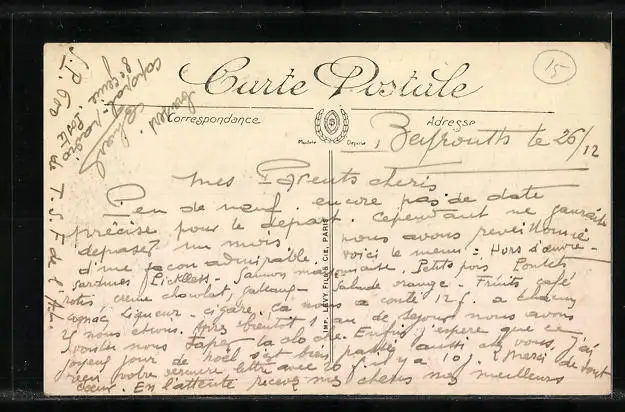 15
Carte Postale
Correspondance
Adresse
Modèle Déposé
IMP. LEVY FILS & CIE, PARIS
Beyrouth le 26/12
mes Parents cheris
Rien de neuf. encore pas de date
précise pour le départ. Cependant ne gaurait
depasser un mois. nous avons reveillonné
d'une façon admirable. voici le menu : Hors d'œuvre -
sardines Pickles - Saumon mayonnaise. Petits pois Poulets
rotis creme chocolat, gateaux - Salade orange - Fruits, café
cognac Liqueur - cigare. Ca nous a couté 12 f. a chacun
nous étions. Après bientôt 1 an de sejour nous avons
voulu nous taper la cloche. Enfin j'espere que ce
joyeux jour de noel s'est bien passé aussi chez vous. J'ai
reçu votre derniere lettre avec 20 f. il y a 10 j. Merci de tout
cœur. En l'attente recevez mes cheris mes meilleurs
baisers
caporal-radio
S.P. 600